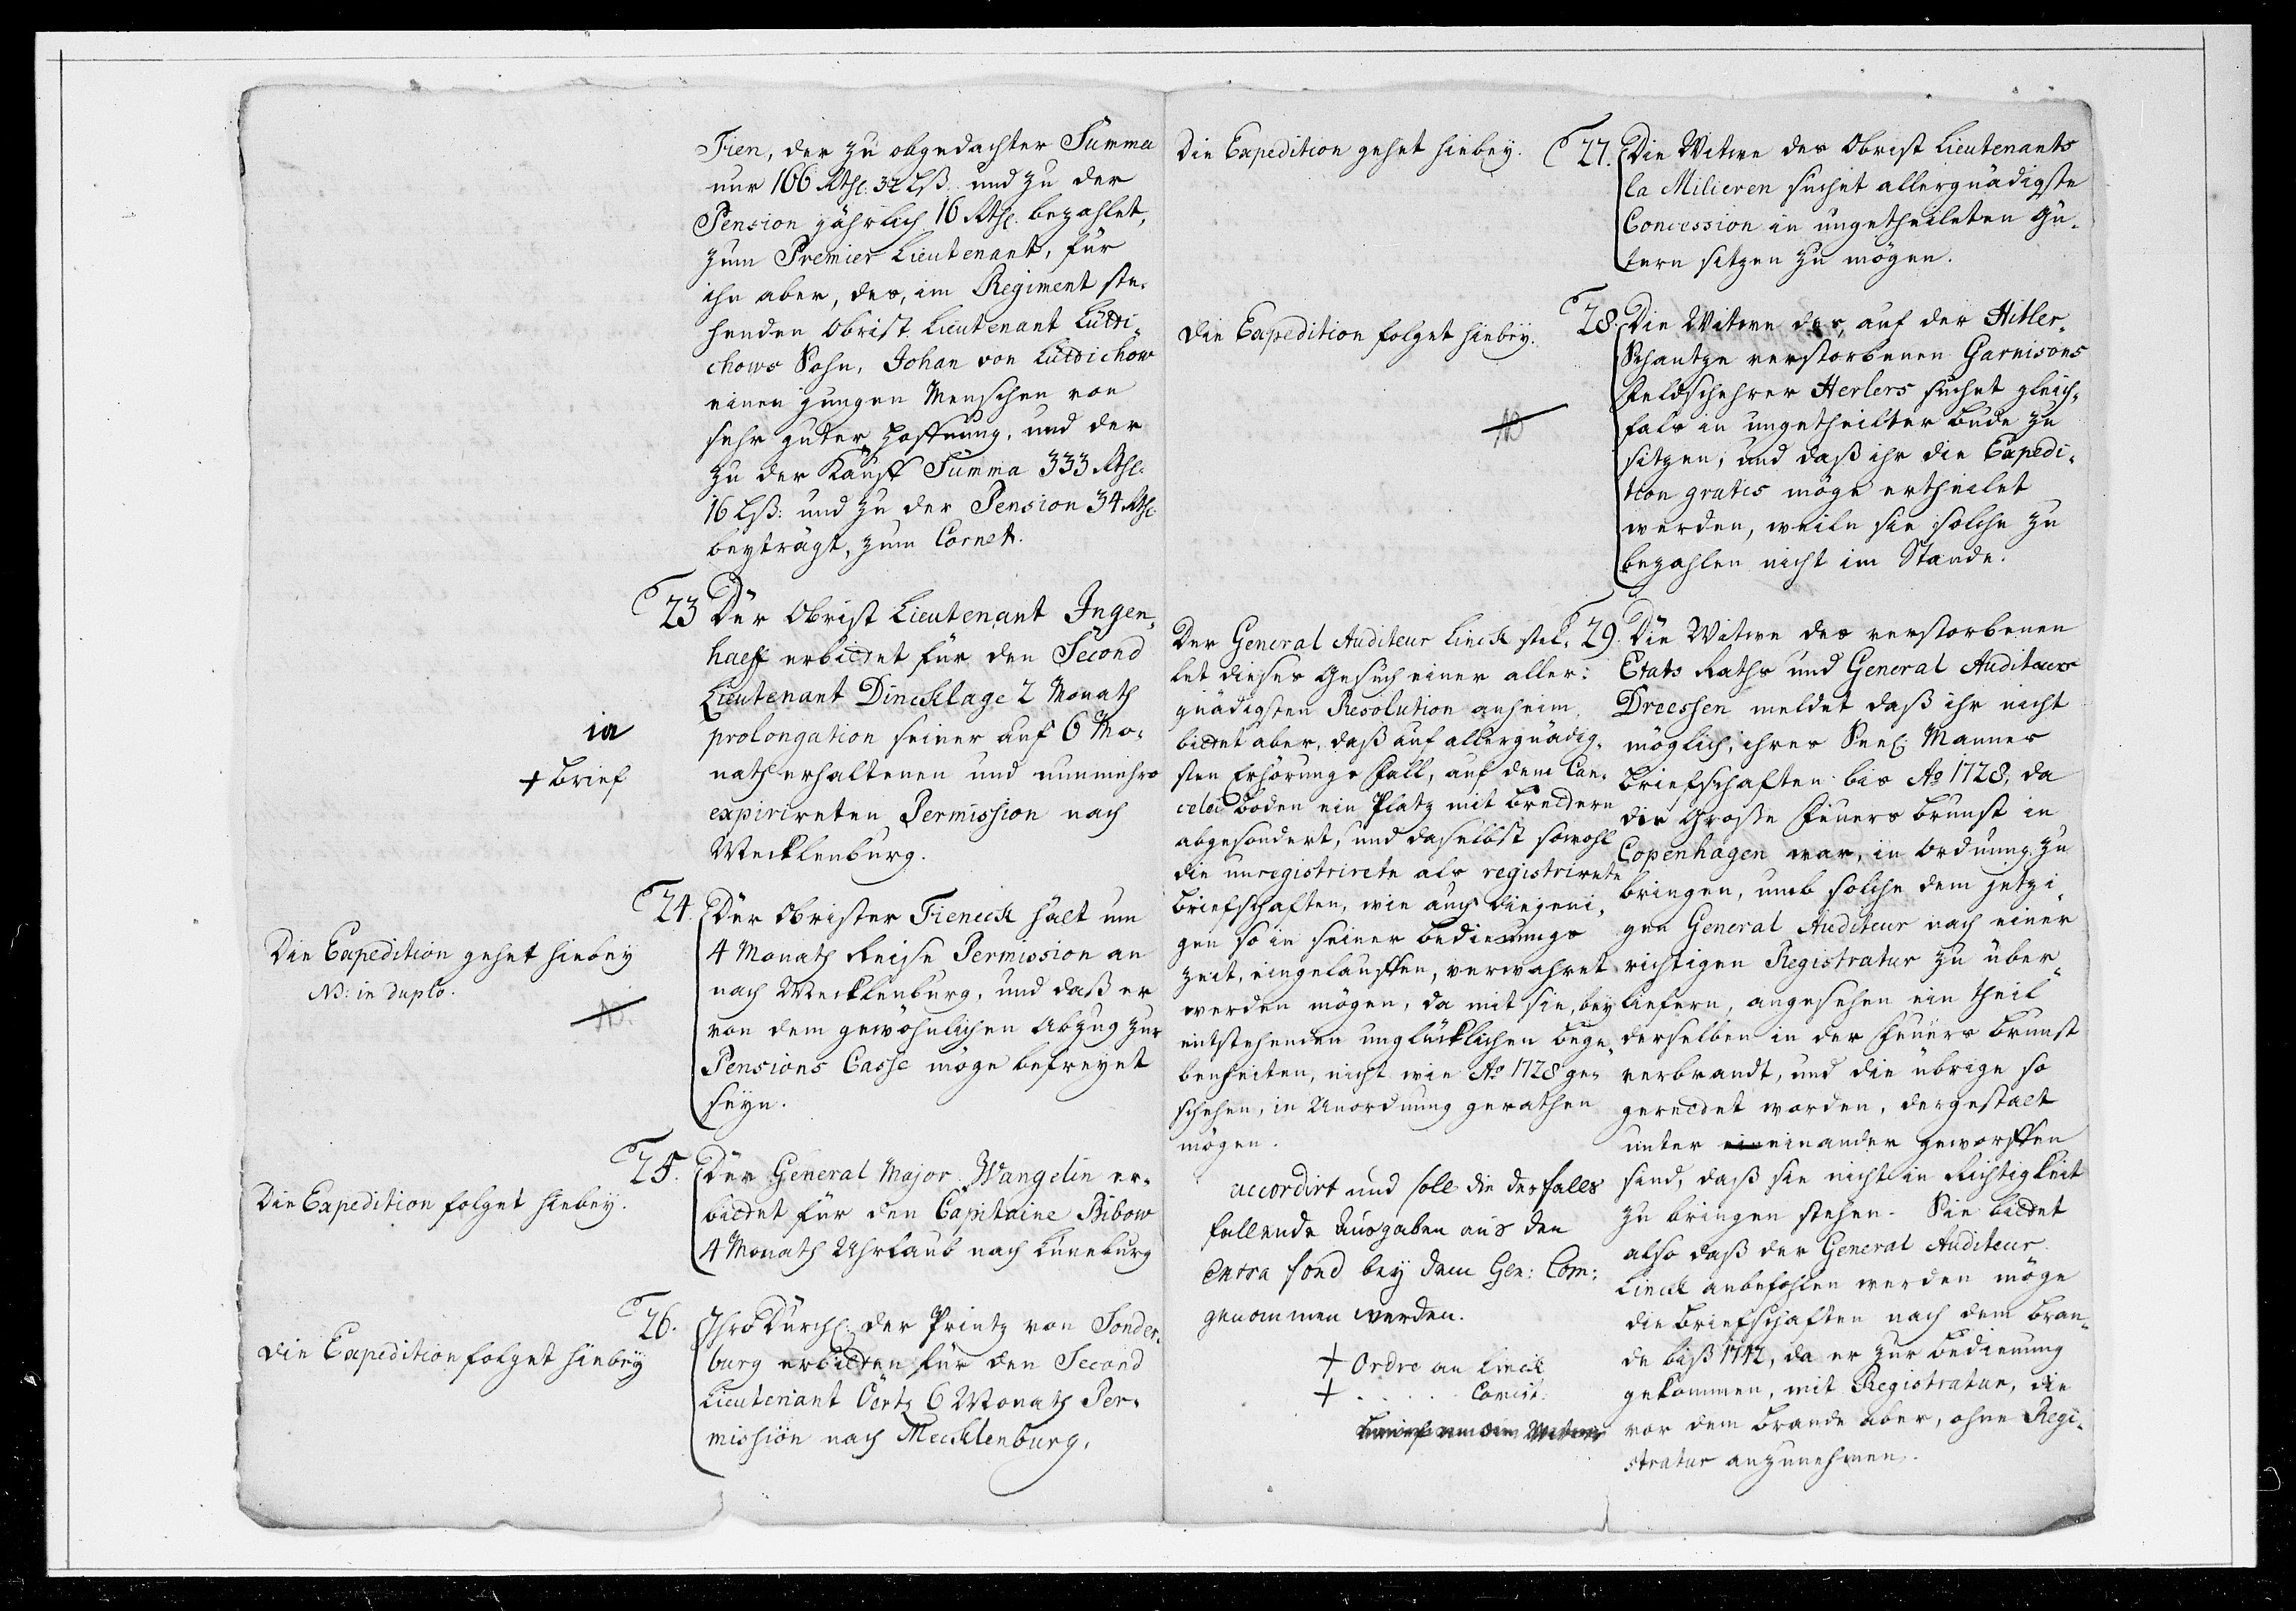 Tien, der zu obgedachter Summa
nur 166 Rthl. 32 Lß. und zu der
Pension jährlich 16 Rthl. bezahlet,
zum Premier Lieutenant, für
ihn aber, des, im Regiment ste-
henden Obrist Lieutenant Lütti-
chows Sohn, Johan von Lüttichow
einen jungen Menschen von
sehr guter Hoffnung, und der
zu der Kauff Summa 333 Rthl.
16 Lß: und zu der Pension 34 Rthl.
beyträgt, zum Cornet.
23 Der Obrist Lieutenant Ingen-
haeff erbittet für den Second
Lieutenant Dincklage 2 Monath
prolongation seiner auf 6 Mo-
nath erhaltenen und nunmehro
expirireten Permission nach
Mecklenburg.
ia
+ Brief
24. Der Obrister Tieneck hält um
4 Monath Reise Permission an
nach Mecklenburg, und daß er
von dem gewöhnlichen Abzug zur
Pensions Casse möge befreyet
seyn.
Die Expedition gehet hiebey
NB: in duplo.
25. Der General Major Wangelin er-
bittet für den Capitaine Bibow
4 Monath Uhrlaub nach Lüneburg
Die Expedition folget hiebey.
26. Ihro Durchl. der Printz von Sonder-
burg erbitten für den Second
Lieutenant Oertz 6 Monath Per-
mission nach Mecklenburg.
Die Expedition folget hiebey
Die Expedition gehet hiebey.
27. Die Witwe des Obrist Lieutenants
la Milieren suchet allergnädigste
Concession in ungetheileten Gü-
tern sitzen zu mögen.
Die Expedition folget hiebey.
28. Die Witwe des, auf der Hitler-
Schantze verstorbenen Garnisons
Feldschehrer Herlers suchet gleich-
fals in ungetheilter bude zu
sitzen, und daß ihr die Expedi-
tion gratis möge ertheilet
werden, weiln sie solche zu
bezahlen nicht im Stande.
29. Die Witwe des verstorbenen
Etats Raths und General Auditeurs
Dreessen meldet daß ihr nicht
möglich, ihres Seel. Mannes
Briefschaften bis Ao 1728, da
die Große Feuers Brunst in
Copenhagen war, in Ordnung zu
bringen, umb solche dem jetzi-
gen General Auditeur nach einer
richtigen Registratur zu über-
liefern, angesehen ein theil
derselben in der Feuers Brunst
verbrandt, und die übrige so
gerettet worden, dergestalt
unter ein einander geworffen
sind, daß sie nicht in Richtigkeit
zu bringen stehen. Sie bittet
also daß der General Auditeur
Linck anbefohlen werden möge
die Briefschaften nach dem Bran-
de biß 1742, da er zur Bedienung
gekommen, mit Registratur, die
vor dem Brande aber, ohne Regi-
stratur anzunehmen.
Der General Auditeur Linck stel-
let dieses Gesuch einer aller-
gnädigsten Resolution anheim,
bittet aber, daß auf allergnädig-
sten Erhörungs Fall, auf dem Can-
celei Boden ein Platz mit Brettern
abgesondert, und daselbst sowohl
die unregistrirete als registrirete
Briefschaften, wie auch diejeni-
gen so in seiner Bedienungs
Zeit, eingelauffen, verwahret
werden mögen, da mit sie, bey
entstehenden unglücklichen bege-
benheiten, nicht wie Ao 1728 ge-
schehen, in Unordnung gerathen
mögen.
accordirt und soll die desfalls
fallende Ausgaben aus den
Extra fond bey dem Gen: Com:
genommen werden.
+ Ordre an Linck
+ . . . . Comiss.